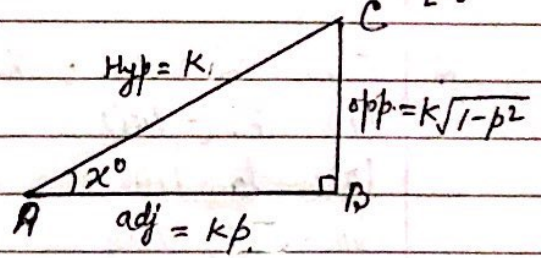 C
Hyp = K
opp. = K√1-p²
x°
A
B
adj = Kp.